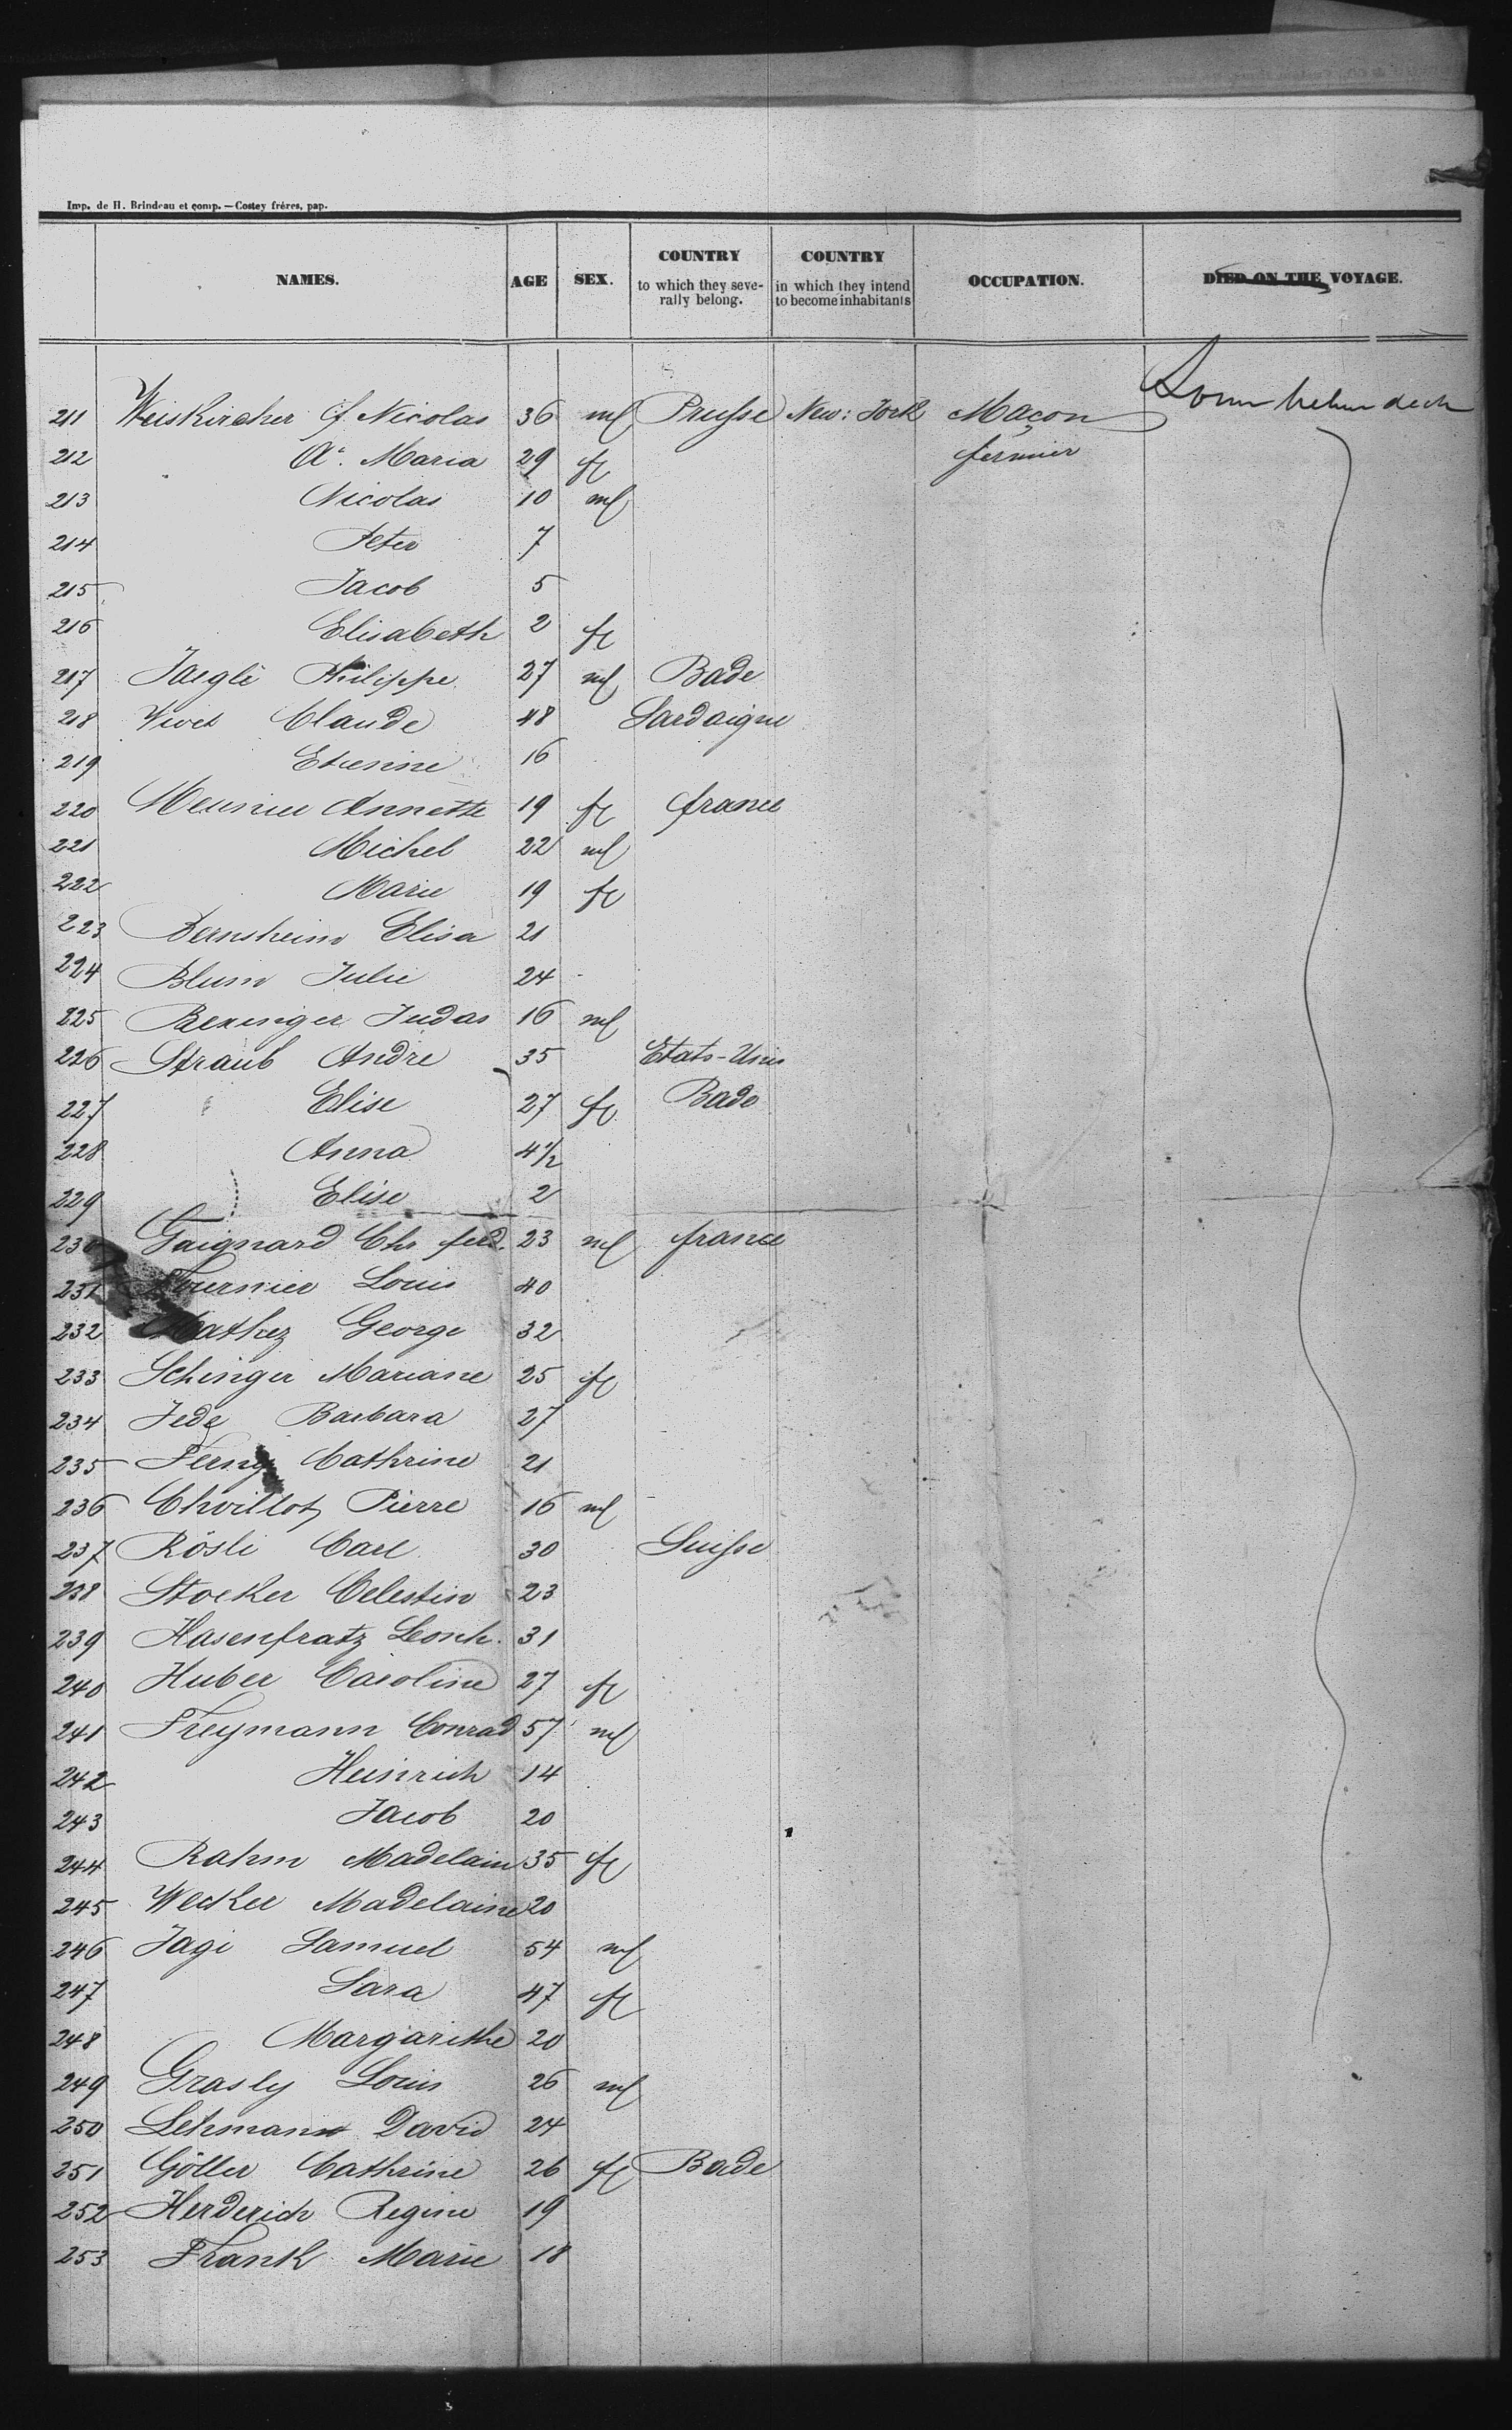 Imp. de H. Brindeau et comp. — Costey frères, pap.
NAMES. AGE SEX. COUNTRY to which they severally belong. COUNTRY in which they intend to become inhabitants OCCUPATION. DIED ON THE VOYAGE.
211 Weiskircher f. Nicolas 36 ml Prusse New: York Maçon
212 Aa. Maria 29 fe fermier
213 Nicolas 10 ml
214 Peter 7
215 Jacob 5
216 Elisabeth 2 fe
217 Jaeglé Philippe 27 ml Bade
218 Vives Claude 48 Sardaigne
219 Etienne 16
220 Meunier Annette 19 fe france
221 Michel 22 ml
222 Marie 19 fe
223 Bernsheim Elisa 21
224 Blum Julie 24
225 Bexinger Judas 16 ml
226 Straub André 35 Etats-Unis
227 Elise 27 fe Bade
228 Anna 4 1/2
229 Elise 2
230 Gaignard Chs ferd. 23 ml france
231 Fournier Louis 40
232 Mathez George 32
233 Schinger Mariane 25 fe
234 Jede Barbara 27
235 Ferny Cathrine 21
236 Chvillot Pierre 16 ml
237 Rösli Carl 30 Suisse
238 Stocker Celestin 23
239 Hasenfratz Leonh. 31
240 Huber Caroline 27 fe
241 Freymann Conrad 57 ml
242 Heinrich 14
243 Jacob 20
244 Rahm Madelain 35 fe
245 Wecker Madelaine 20
246 Jagi Samuel 54 ml
247 Sara 47 fe
248 Margarithe 20
249 Grasly Louis 26 ml
250 Lehmann David 24
251 Göller Cathrine 26 fe Bade
252 Herderich Regine 19
253 Frank Marie 18